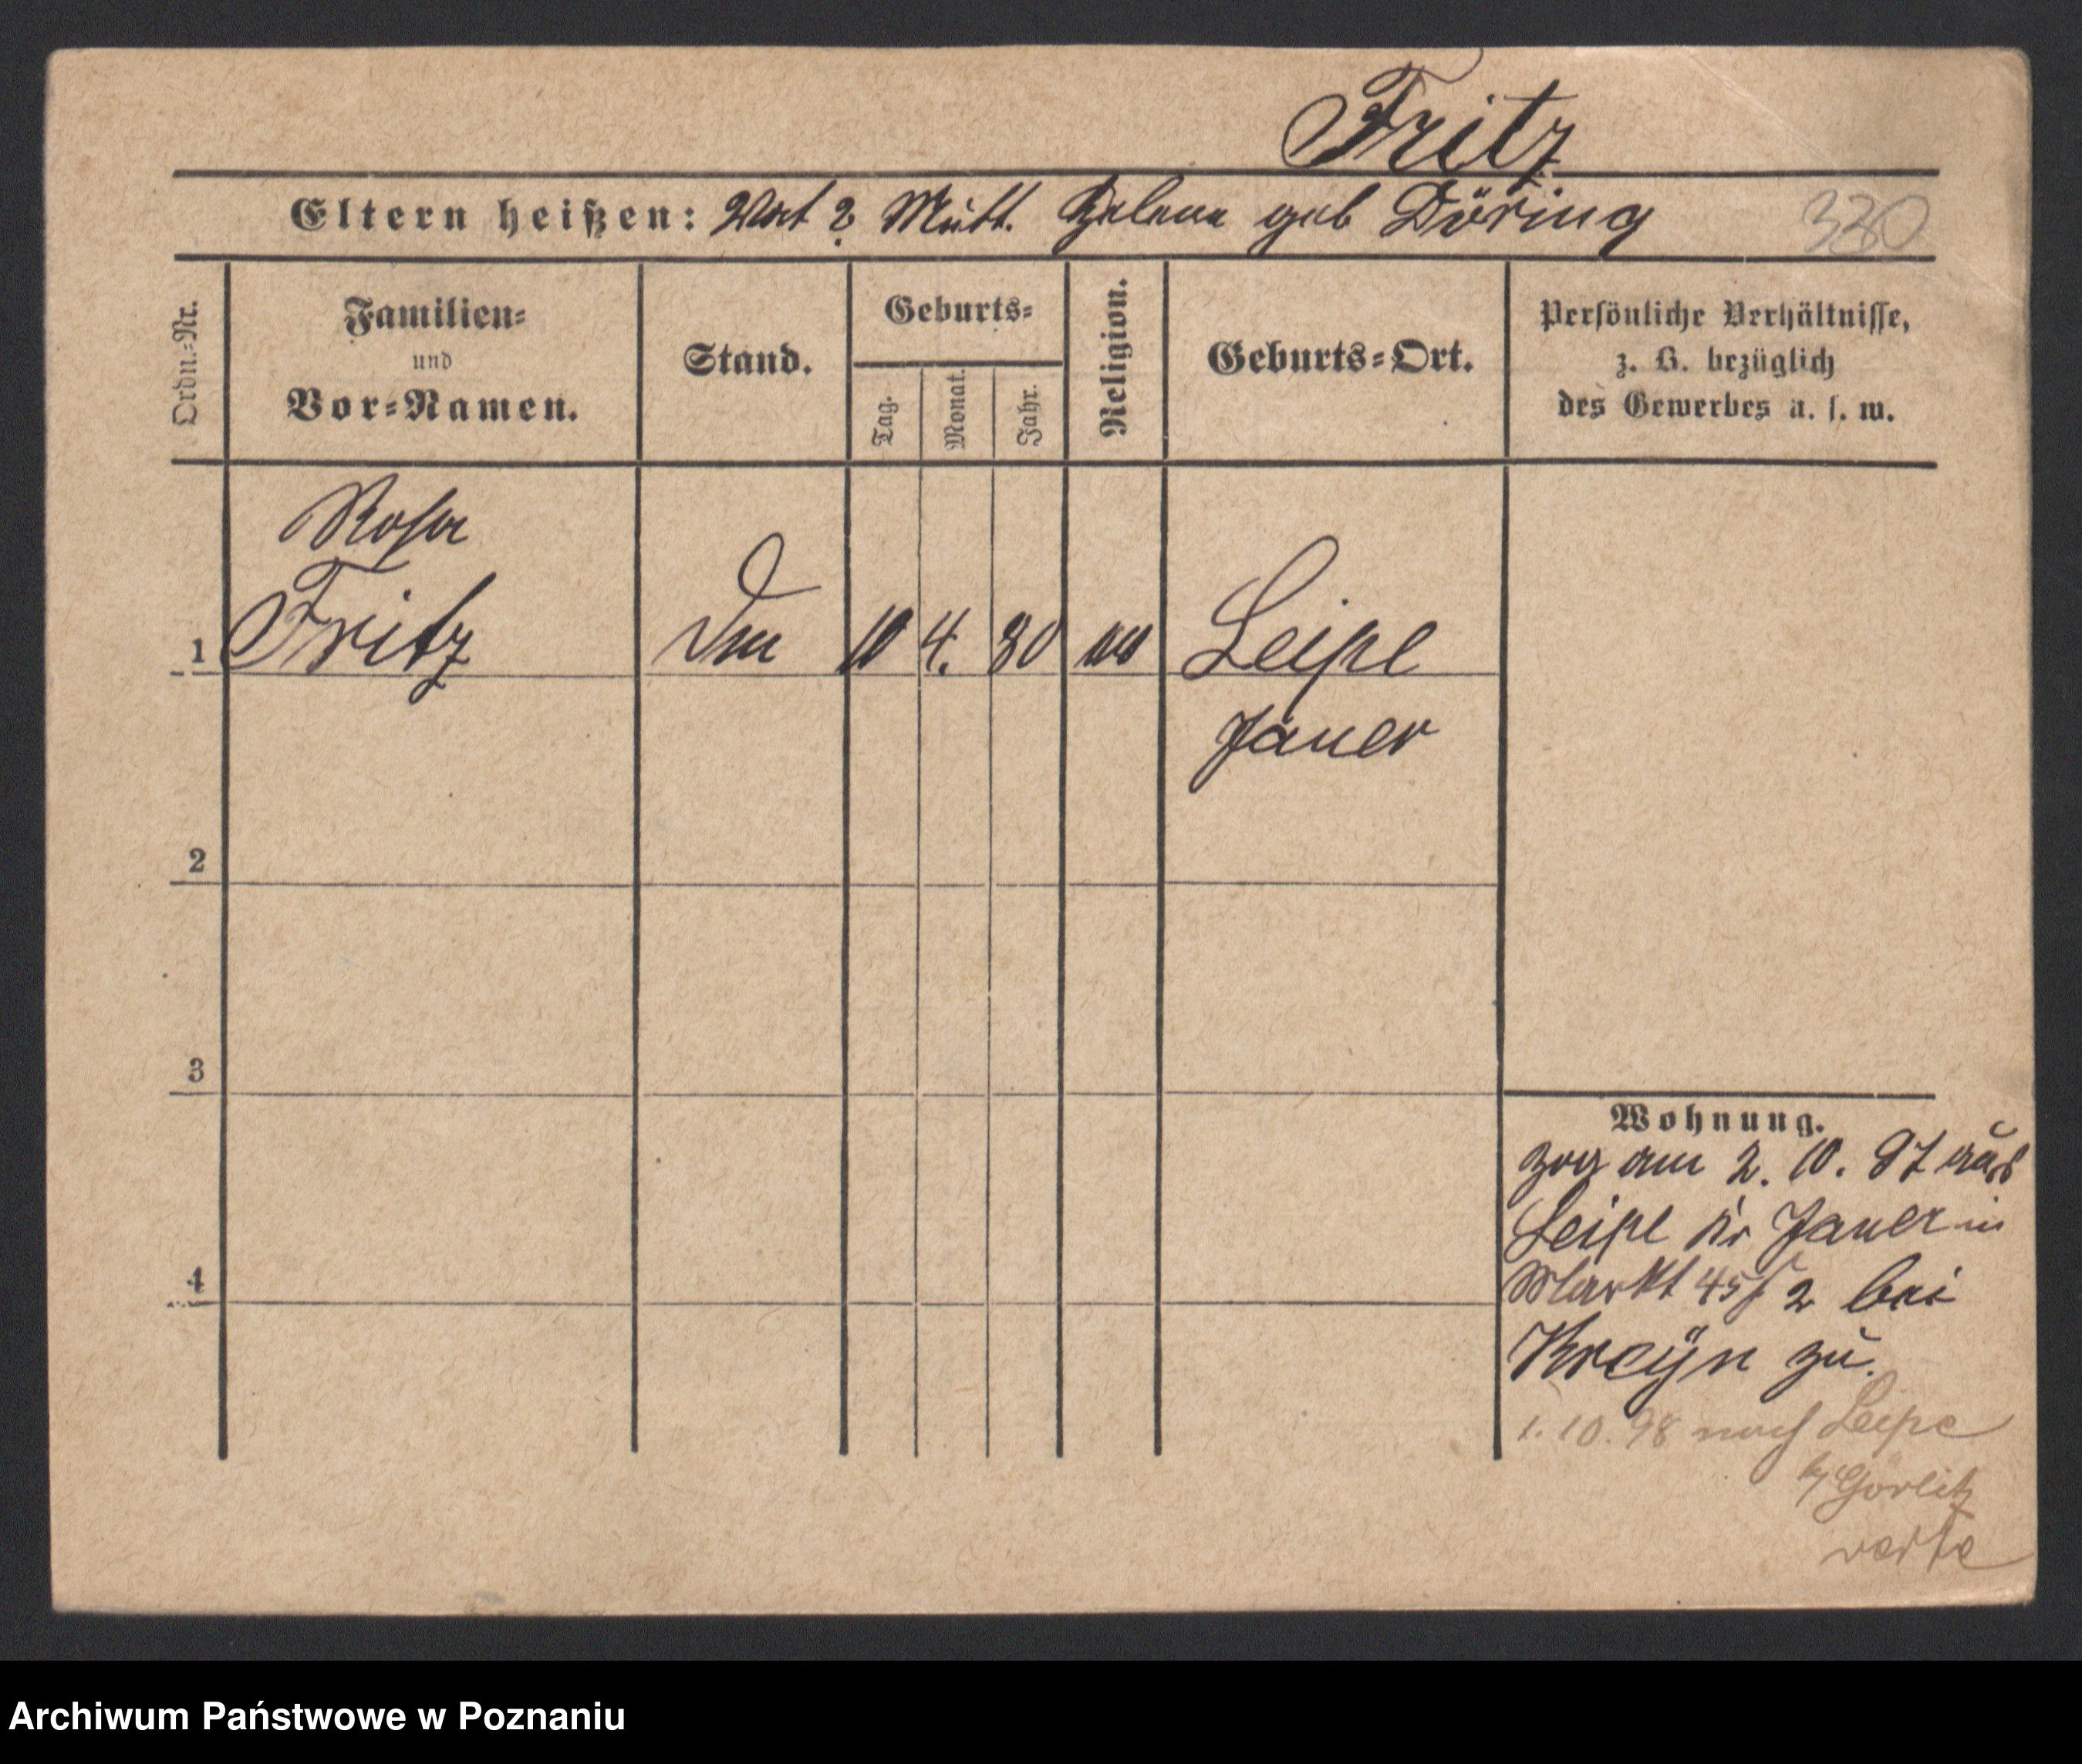 Fritz
Eltern heißen: Vat ? Mutt. Helene geb Döring
330
Ordn.-Nr.
Familien-
und
Vor-Namen.
Stand.
Geburts-
Tag.
Monat.
Jahr.
Religion.
Geburts-Ort.
Persönliche Verhältnisse,
z. B. bezüglich
des Gewerbes u. s. w.
Rosa
1 Fritz 10 4. 80 Leipe
Jauer
2
3
4
Wohnung.
zog am 2. 10. 97 aus
Leipe Kr Jauer in
Markt 45/ 2 bei
zu.
1. 10. 98 nach Leipe
b/ Görlitz
verte
Archiwum Państwowe w Poznaniu